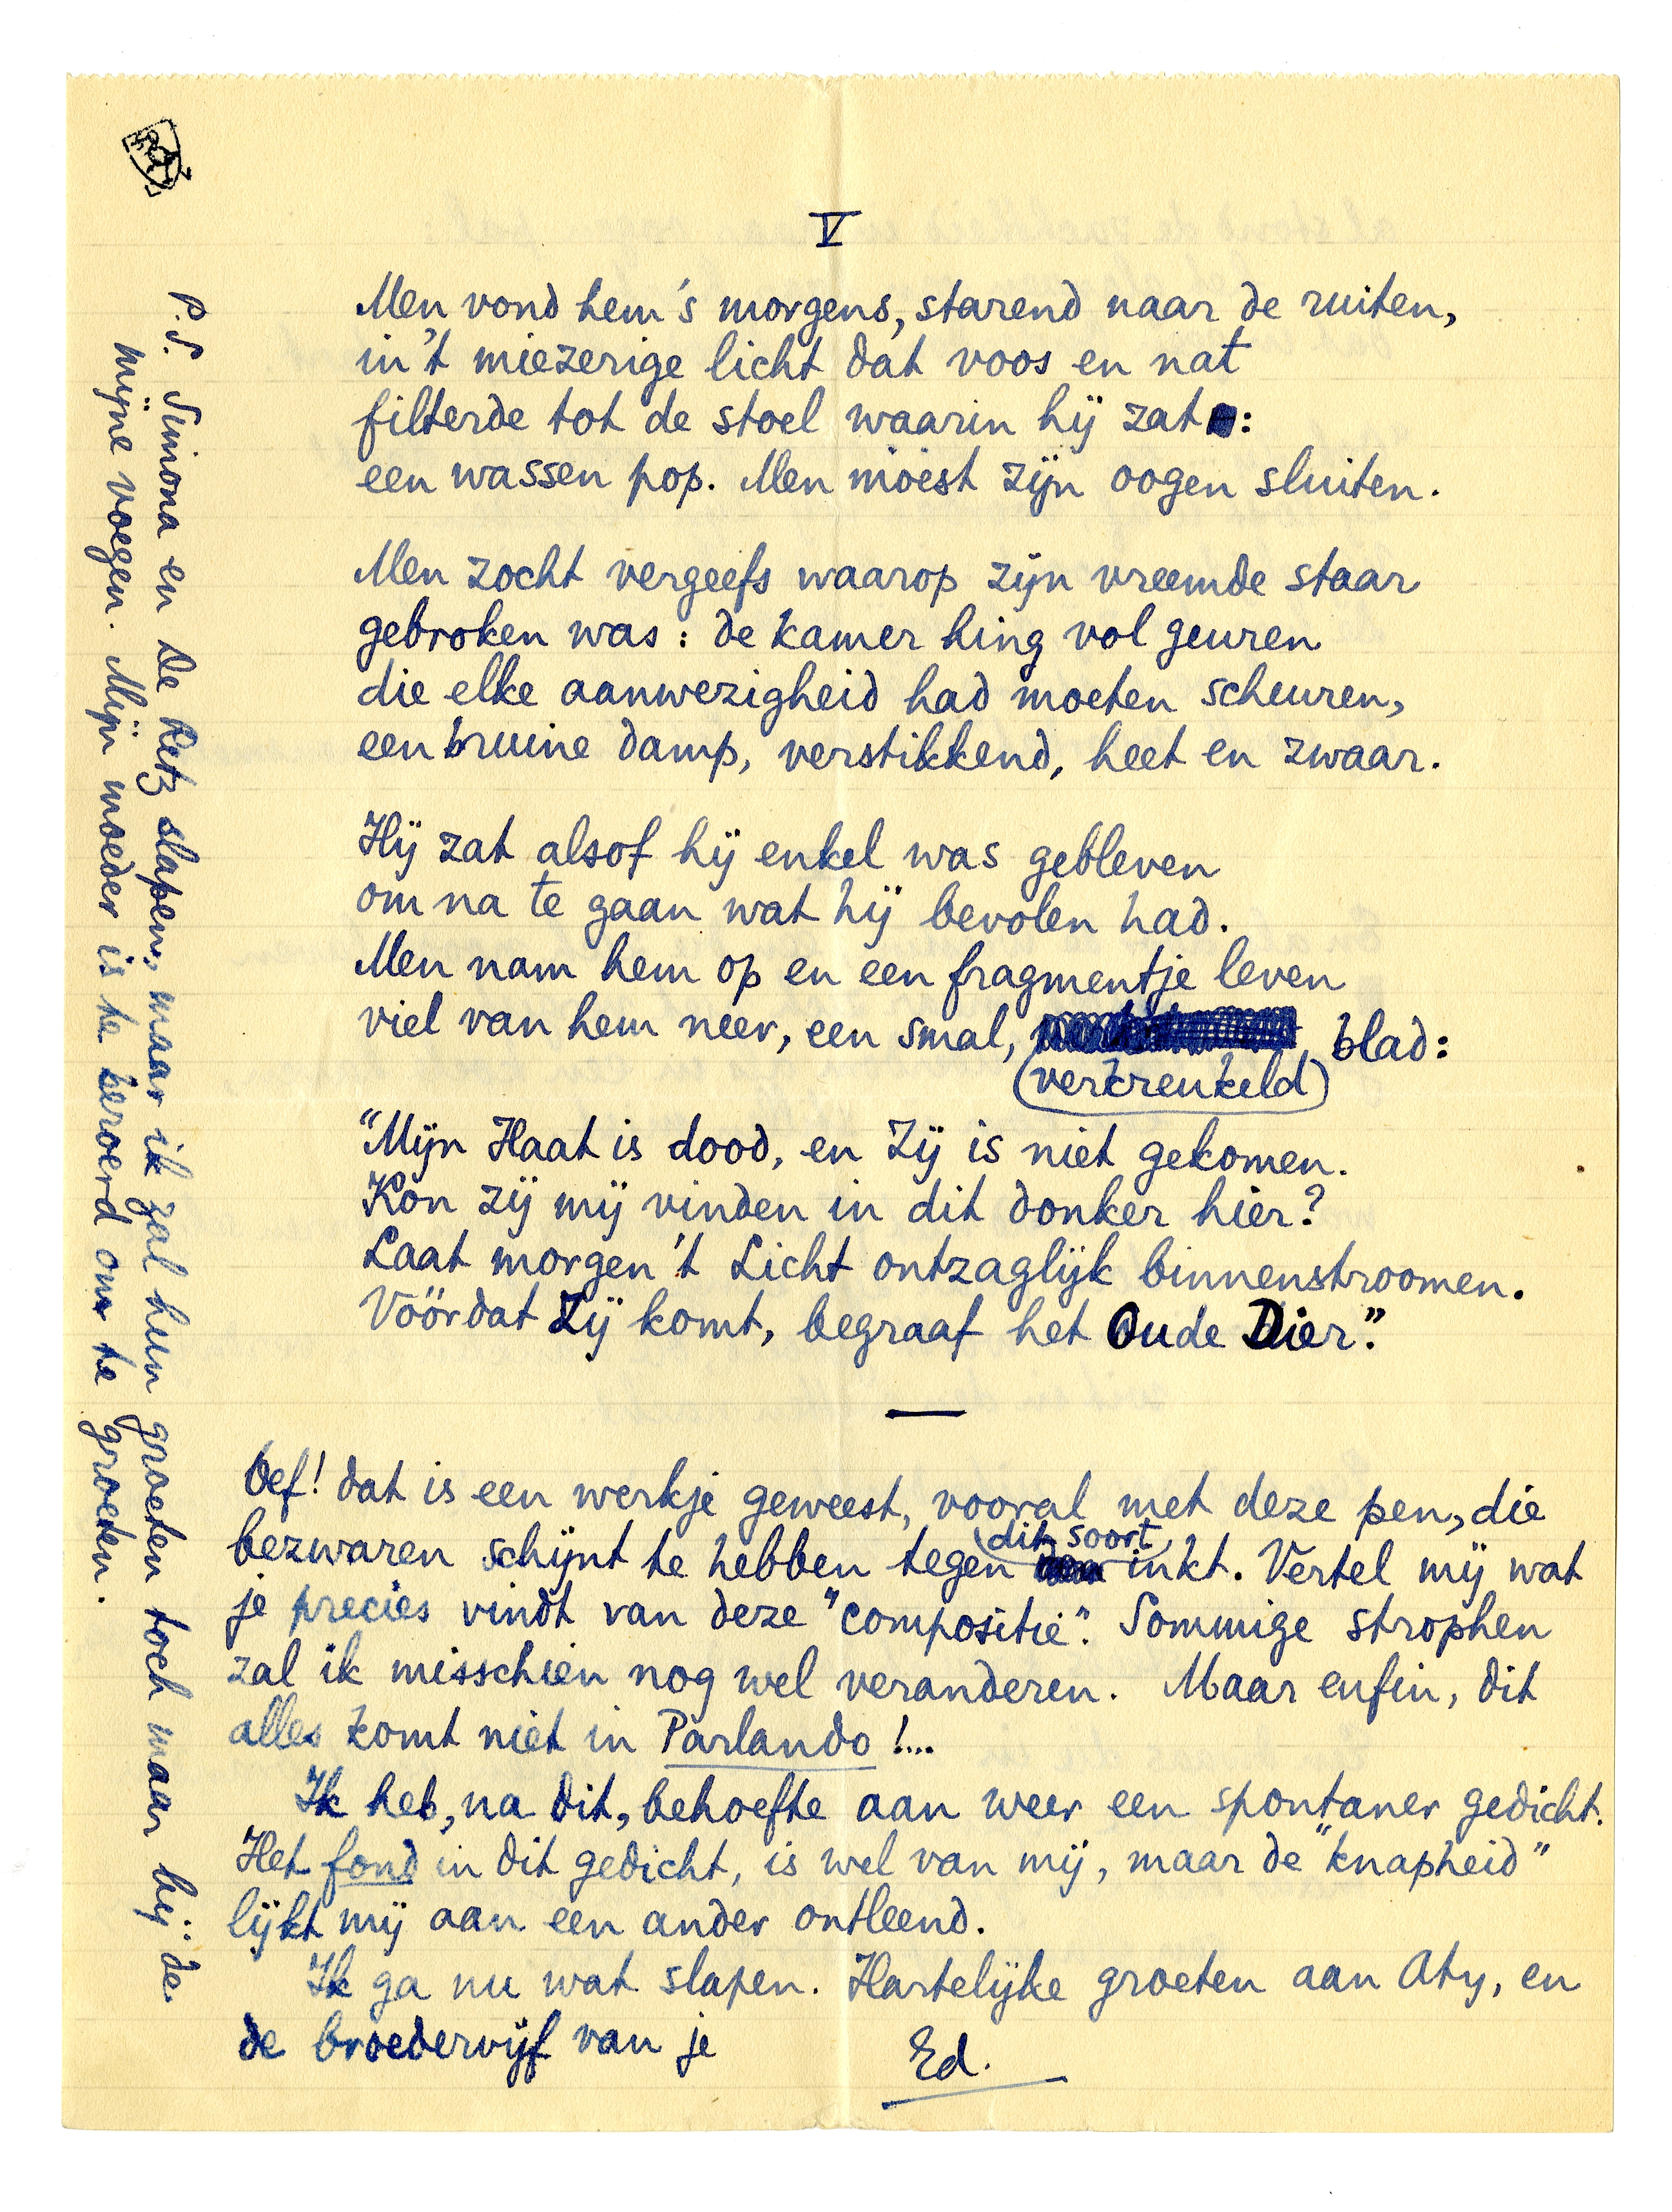 V
Men vond hem 's morgens, starend naar de ruiten,
in 't miezerige licht dat voos en nat
filterde tot de stoel waarin hij zat:
een wassen pop. Men moest zijn oogen sluiten.
Men zocht vergeefs waarop zijn vreemde staar
gebroken was: de kamer hing vol geuren
die elke aanwezigheid had moeten scheuren,
een bruine damp, verstikkend, heet en zwaar.
Hij zat alsof hij enkel was gebleven
om na te gaan wat hij bevolen had.
Men nam hem op en een fragmentje leven
viel van hem neer, een smal, verkreukeld blad:
"Mijn Haat is dood, en Zij is niet gekomen.
Kon zij mij vinden in dit donker hier?
Laat morgen 't Licht ontzaglijk binnenstroomen.
Vóórdat Zij komt, begraaf het Oude Dier."
—
Oef! dat is een werkje geweest, vooral met deze pen, die
bezwaren schijnt te hebben tegen dit soort inkt. Vertel mij wat
je precies vindt van deze "compositie". Sommige strophen
zal ik misschien nog wel veranderen. Maar enfin, dit
alles komt niet in Parlando!...
Ik heb, na dit, behoefte aan weer een spontaner gedicht.
Het fond in dit gedicht, is wel van mij, maar de "knapheid"
lijkt mij aan een ander ontleend.
Ik ga nu wat slapen. Hartelijke groeten aan Aty, en
de broedervijf van je
Ed.
P.S. Simona en de Retz slapen, maar ik zal hun groeten toch maar bij de
mijne voegen. Mijn moeder is te beroerd om te groeten.